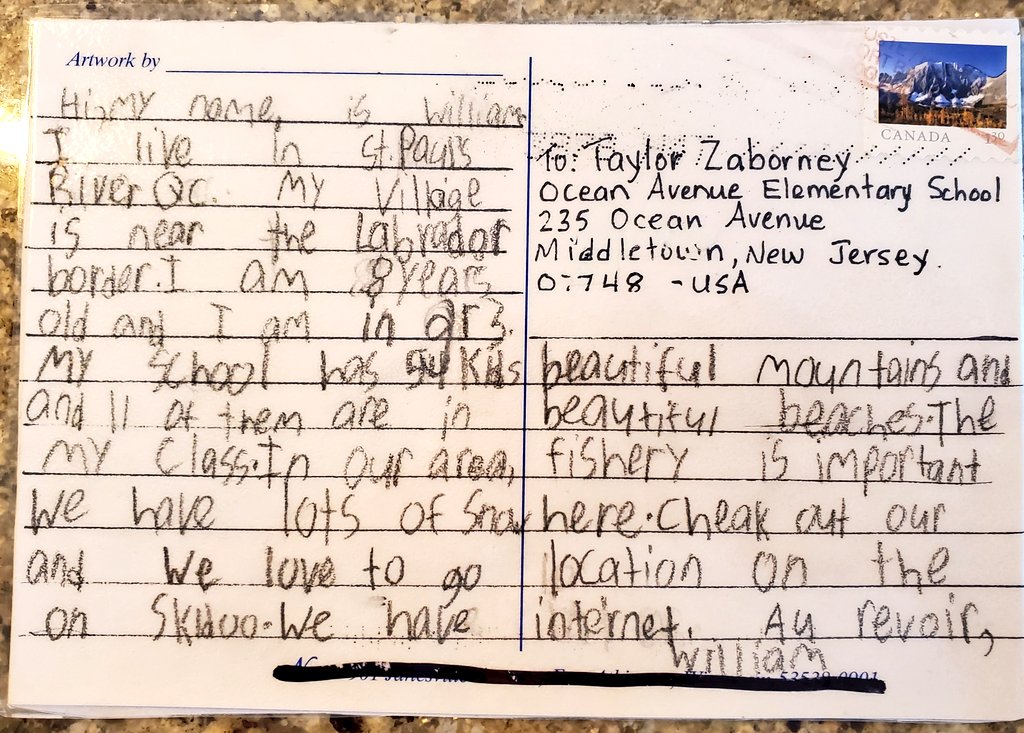 Artwork by
Hi, my name, is William
I live in St. Paul's
River QC. My Village
is near the Labrador
border. I am 8 years
old and I am in gr 3.
My School has 54 Kids
and 11 of them are in
my Class. In our area,
We have lots of Snow
and We love to go
on Skidoo. We have
CANADA
To: Taylor Zaborney
Ocean Avenue Elementary School
235 Ocean Avenue
Middletown, New Jersey
07748 - USA
beautiful mountains and
beautiful beaches. The
fishery is important
here. Cheak out our
location on the
internet. Au revoir,
William
53538-0901